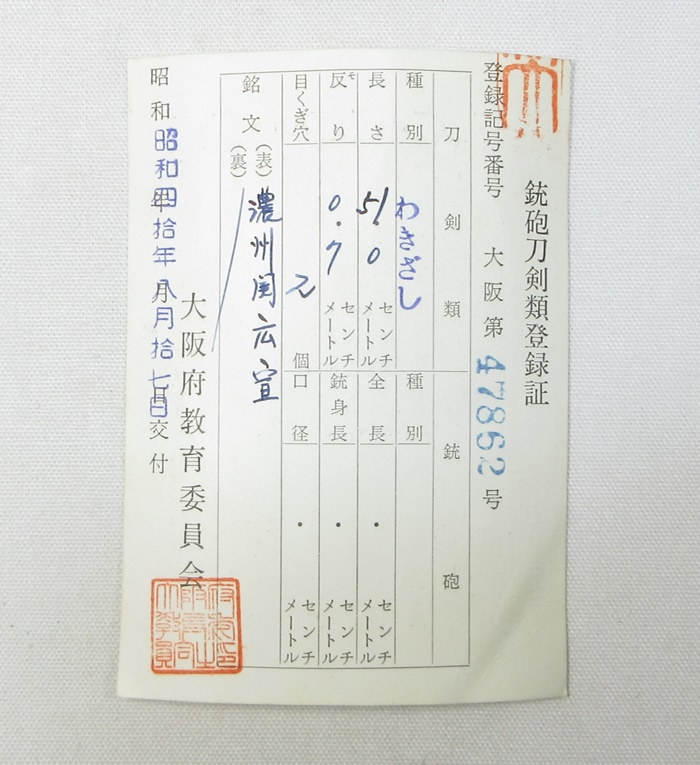 銃砲刀剣類登録証
登録記号番号 大阪第 47862 号
刀剣類
種別 わきざし
長さ 51.0 センチメートル
反り 0.7 センチメートル
そ
目くぎ穴 2 個
銃砲
種別
全長 ・ センチメートル
銃身長 ・ センチメートル
口径 ・ センチメートル
銘文 (表) 濃州関広宣
(裏)
大阪府教育委員会
昭和 年 月 日交付
昭和四拾年八月拾七日